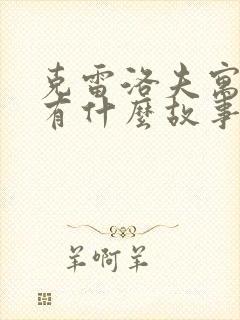 克雷洛夫寓
有什麼故事
羊啊羊